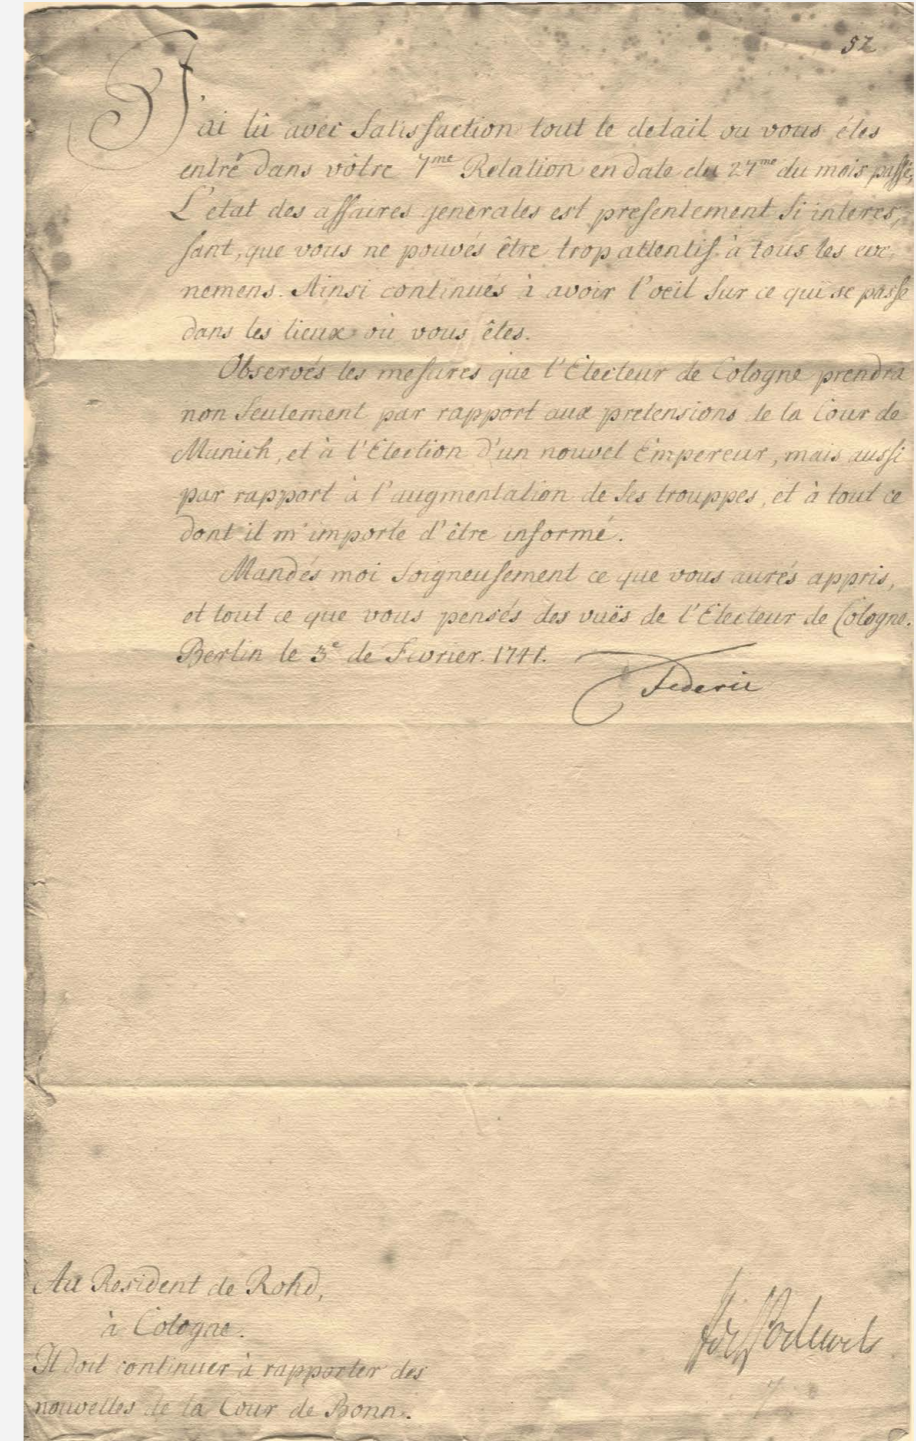 52
J'ai lû avec Satisfaction tout le detail ou vous étes
entré dans vôtre 7me Relation en date du 27me du mois passé,
L'etat des affaires generales est presentement Si interes,,
sant, que vous ne pouvés être trop attentif à tous les eve,,
nemens. Ainsi continués à avoir l'oeil Sur ce qui se passe
dans les lieux où vous êtes.
Observés les mesures que l'Electeur de Cologne prendra
non Seulement par rapport aux pretensions de la Cour de
Munich, et à l'Election d'un nouvel Empereur, mais aussi
par rapport à l'augmentation de Ses trouppes, et à tout ce
dont il m'importe d'être informé.
Mandés moi Soigneusement ce que vous aurés appris,
et tout ce que vous pensés des vuës de l'Electeur de Cologne.
Berlin le 3e de Fevrier. 1741.
Federic
Au Resident de Rohd,
à Cologne.
Il doit continuer à rapporter des
nouvelles de la Cour de Bonn.
Podewils